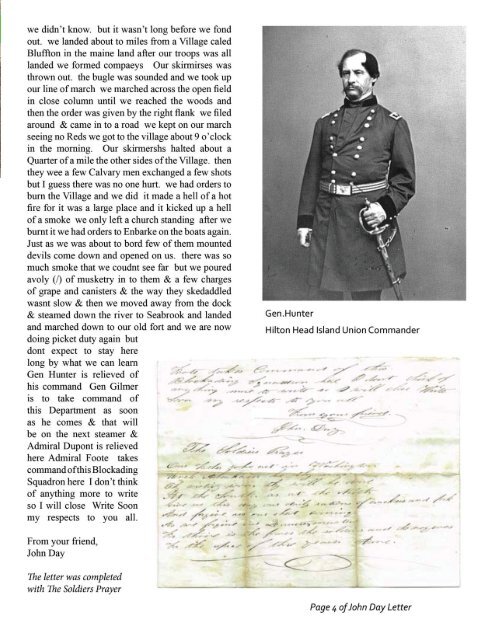 we didn't know.  but it wasn't long before we fond
out.  we landed about to miles from a Village caled
Bluffton in the maine land after our troops was all
landed we formed compaeys   Our skirmirses was
thrown out.  the bugle was sounded and we took up
our line of march  we marched across the open field
in close column until we reached the woods and
then the order was given by the right flank  we filed
around  & came in to a road  we kept on our march
seeing no Reds we got to the village about 9 o'clock
in the morning.   Our skirmershs halted about a
Quarter of a mile the other sides of the Village.  then
they wee a few Calvary men exchanged a few shots
but I guess there was no one hurt.  we had orders to
burn the Village and we did  it made a hell of a hot
fire for it was a large place and it kicked up a hell
of a smoke  we only left a church standing  after we
burnt it we had orders to Enbarke on the boats again.
Just as we was about to bord few of them mounted
devils come down and opened on us.  there was so
much smoke that we coudnt see far  but we poured
avoly (/) of musketry in to them & a few charges
of grape and canisters & the way they skedaddled
wasnt slow & then we moved away from the dock
& steamed down the river to Seabrook and landed
and marched down to our old fort and we are now
doing picket duty again  but
dont expect to stay here
long by what we can learn
Gen Hunter is relieved of
his command  Gen Gilmer
is to take command of
this Department as soon
as he comes & that will
be on the next steamer &
Admiral Dupont is relieved
here Admiral Foote  takes
command of this Blockading
Squadron here  I don't think
of anything more to write
so I will close  Write Soon
my respects to you all.
From your friend,
John Day
The letter was completed
with The Soldiers Prayer
Gen.Hunter
Hilton Head Island Union Commander
takes Command of this
Blockading Squadron
anything more to write so I will close Write
my respects to you all
From your friend
John Day
The Soldiers Prayer
Page 4 of John Day Letter